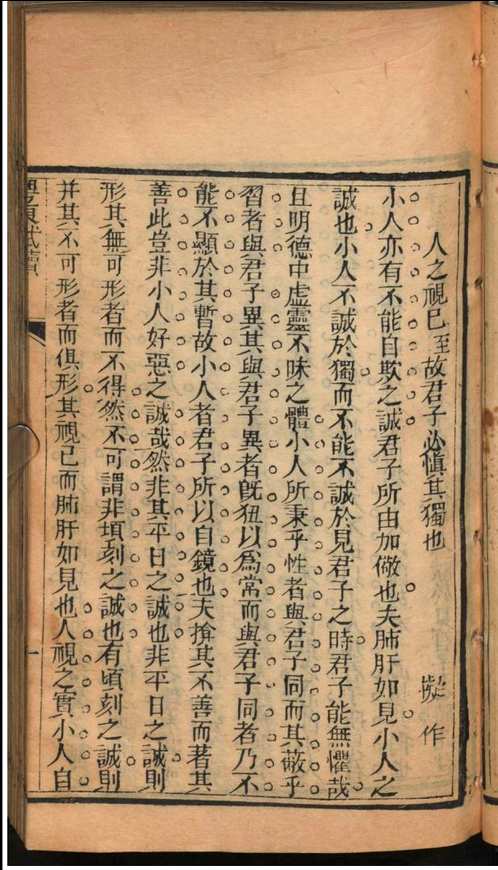 人之視已至故君子必慎其獨也 擬作
小人亦有不能自欺之誠君子所由加儆也夫肺肝如見小人之
誠也小人不誠於獨而不能不誠於見君子之時君子能無懼哉
且明德中虛靈不昧之體小人所秉乎性者與君子同而其蔽乎
習者與君子異其與君子異者旣狃以爲常而與君子同者乃不
能不顯於其暫故小人者君子所以自鏡也夫揜其不善而著其
善此豈非小人好惡之誠哉然非其平日之誠也非平日之誠則
形其無可形者而不得然不可謂非頃刻之誠也有頃刻之誠則
并其不可形者而俱形其視已而肺肝如見也人視之實小人自
一